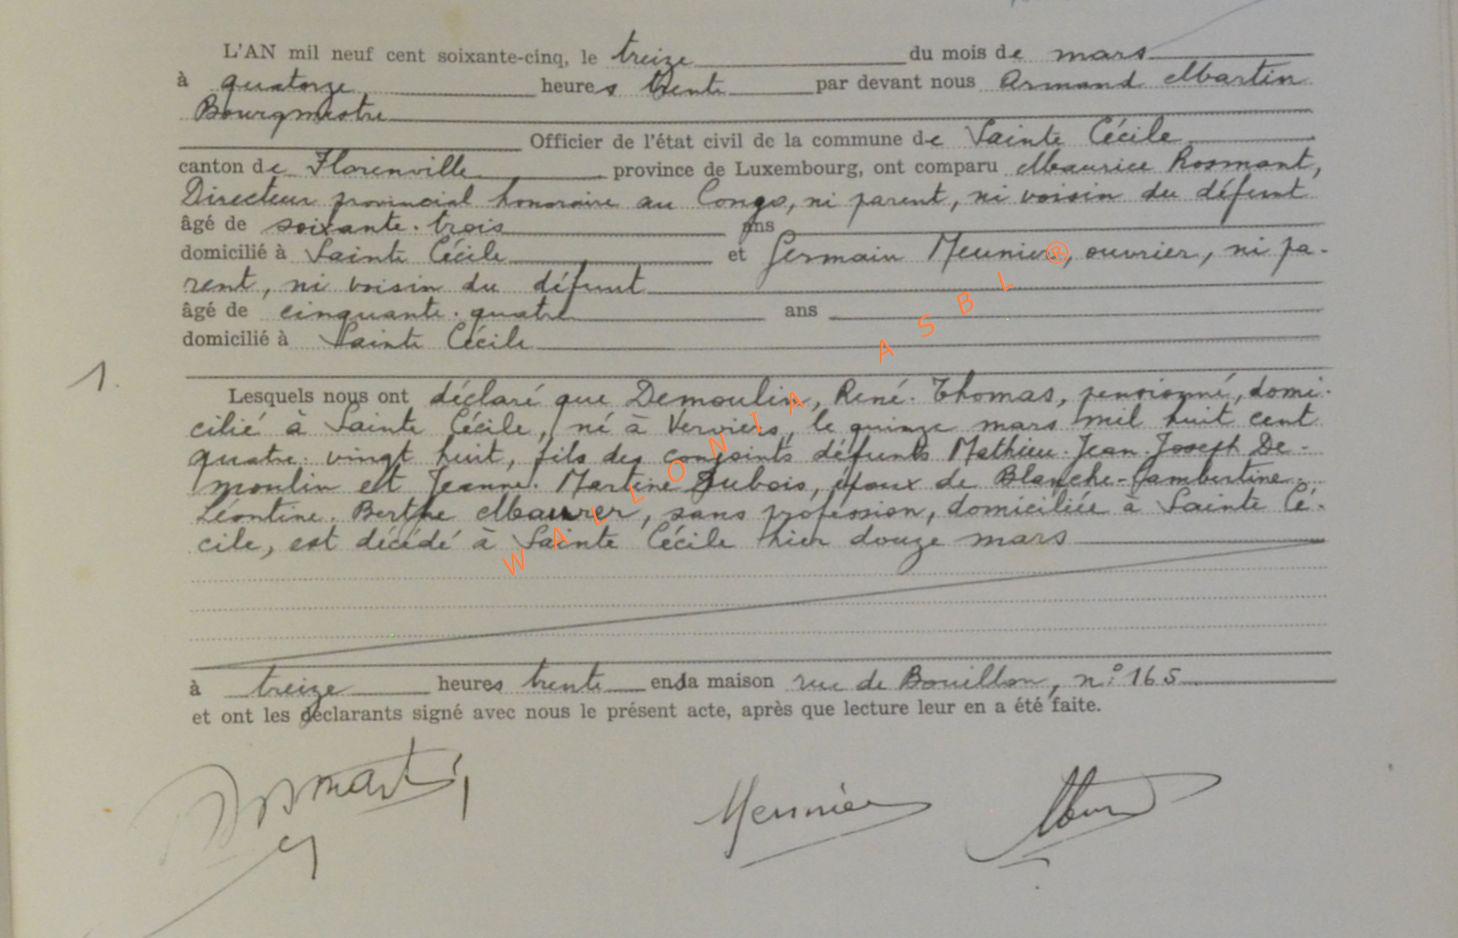 L'AN mil neuf cent soixante-cinq, le treize du mois de mars
à quatorze heures trente par devant nous Armand Martin
Bourgmestre
Officier de l'état civil de la commune de Sainte Cécile
canton de Florenville province de Luxembourg, ont comparu Maurice Rosmant,
Directeur provincial honoraire au Congo, ni parent, ni voisin du défunt
âgé de soixante-trois ans
domicilié à Sainte Cécile et Germain Meunier, ouvrier, ni pa-
rent, ni voisin du défunt
âgé de cinquante-quatre ans
domicilié à Sainte Cécile
1.
Lesquels nous ont déclaré que Demoulin, René-Thomas, pensionné, domi-
cilié à Sainte Cécile, né à Verviers, le quinze mars mil huit cent
quatre-vingt huit, fils des conjoints défunts Mathieu-Jean-Joseph De-
moulin et Jeanne-Martine Dubois, époux de Blanche-Lambertine-
Léontine-Berthe Maurer, sans profession, domiciliée à Sainte Cé-
cile, est décédé à Sainte Cécile hier douze mars
à treize heures trente en sa maison rue de Bouillon, n° 165
et ont les déclarants signé avec nous le présent acte, après que lecture leur en a été faite.
Meunier
WALLONIA ASBL ®